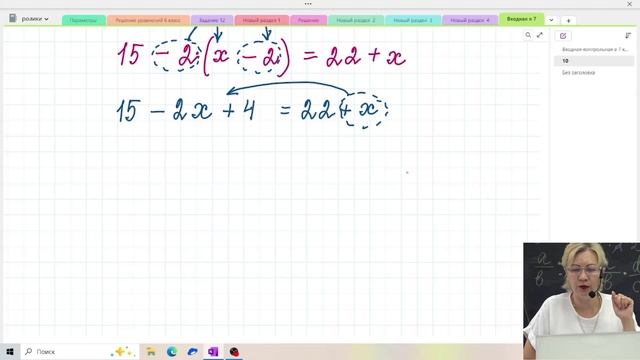 ролики
Параметры
Решение уравнений 6 класс
Задание 12
Новый раздел 1
Решение
Новый раздел 2
Новый раздел 3
Новый раздел 4
Входная к 7
15 - 2(x - 2) = 22 + x
15 - 2x + 4 = 22 + x
Входная контрольная в 7 к...
10
Без заголовка
a/b
Поиск